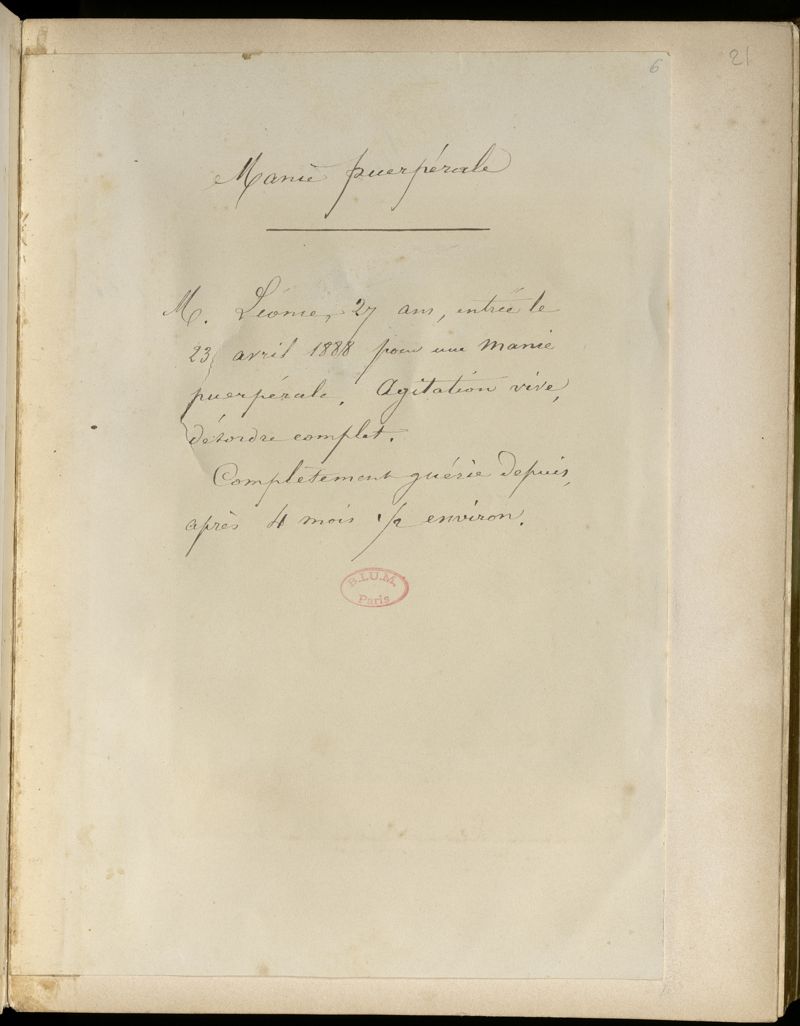 6
21
Manie puerpérale
M. Léonie, 27 ans, entrée le
23 avril 1888 pour une manie
puerpérale. Agitation vive,
désordre complet.
Complètement guérie depuis,
après 4 mois 1/2 environ.
B.I.U.M.
Paris